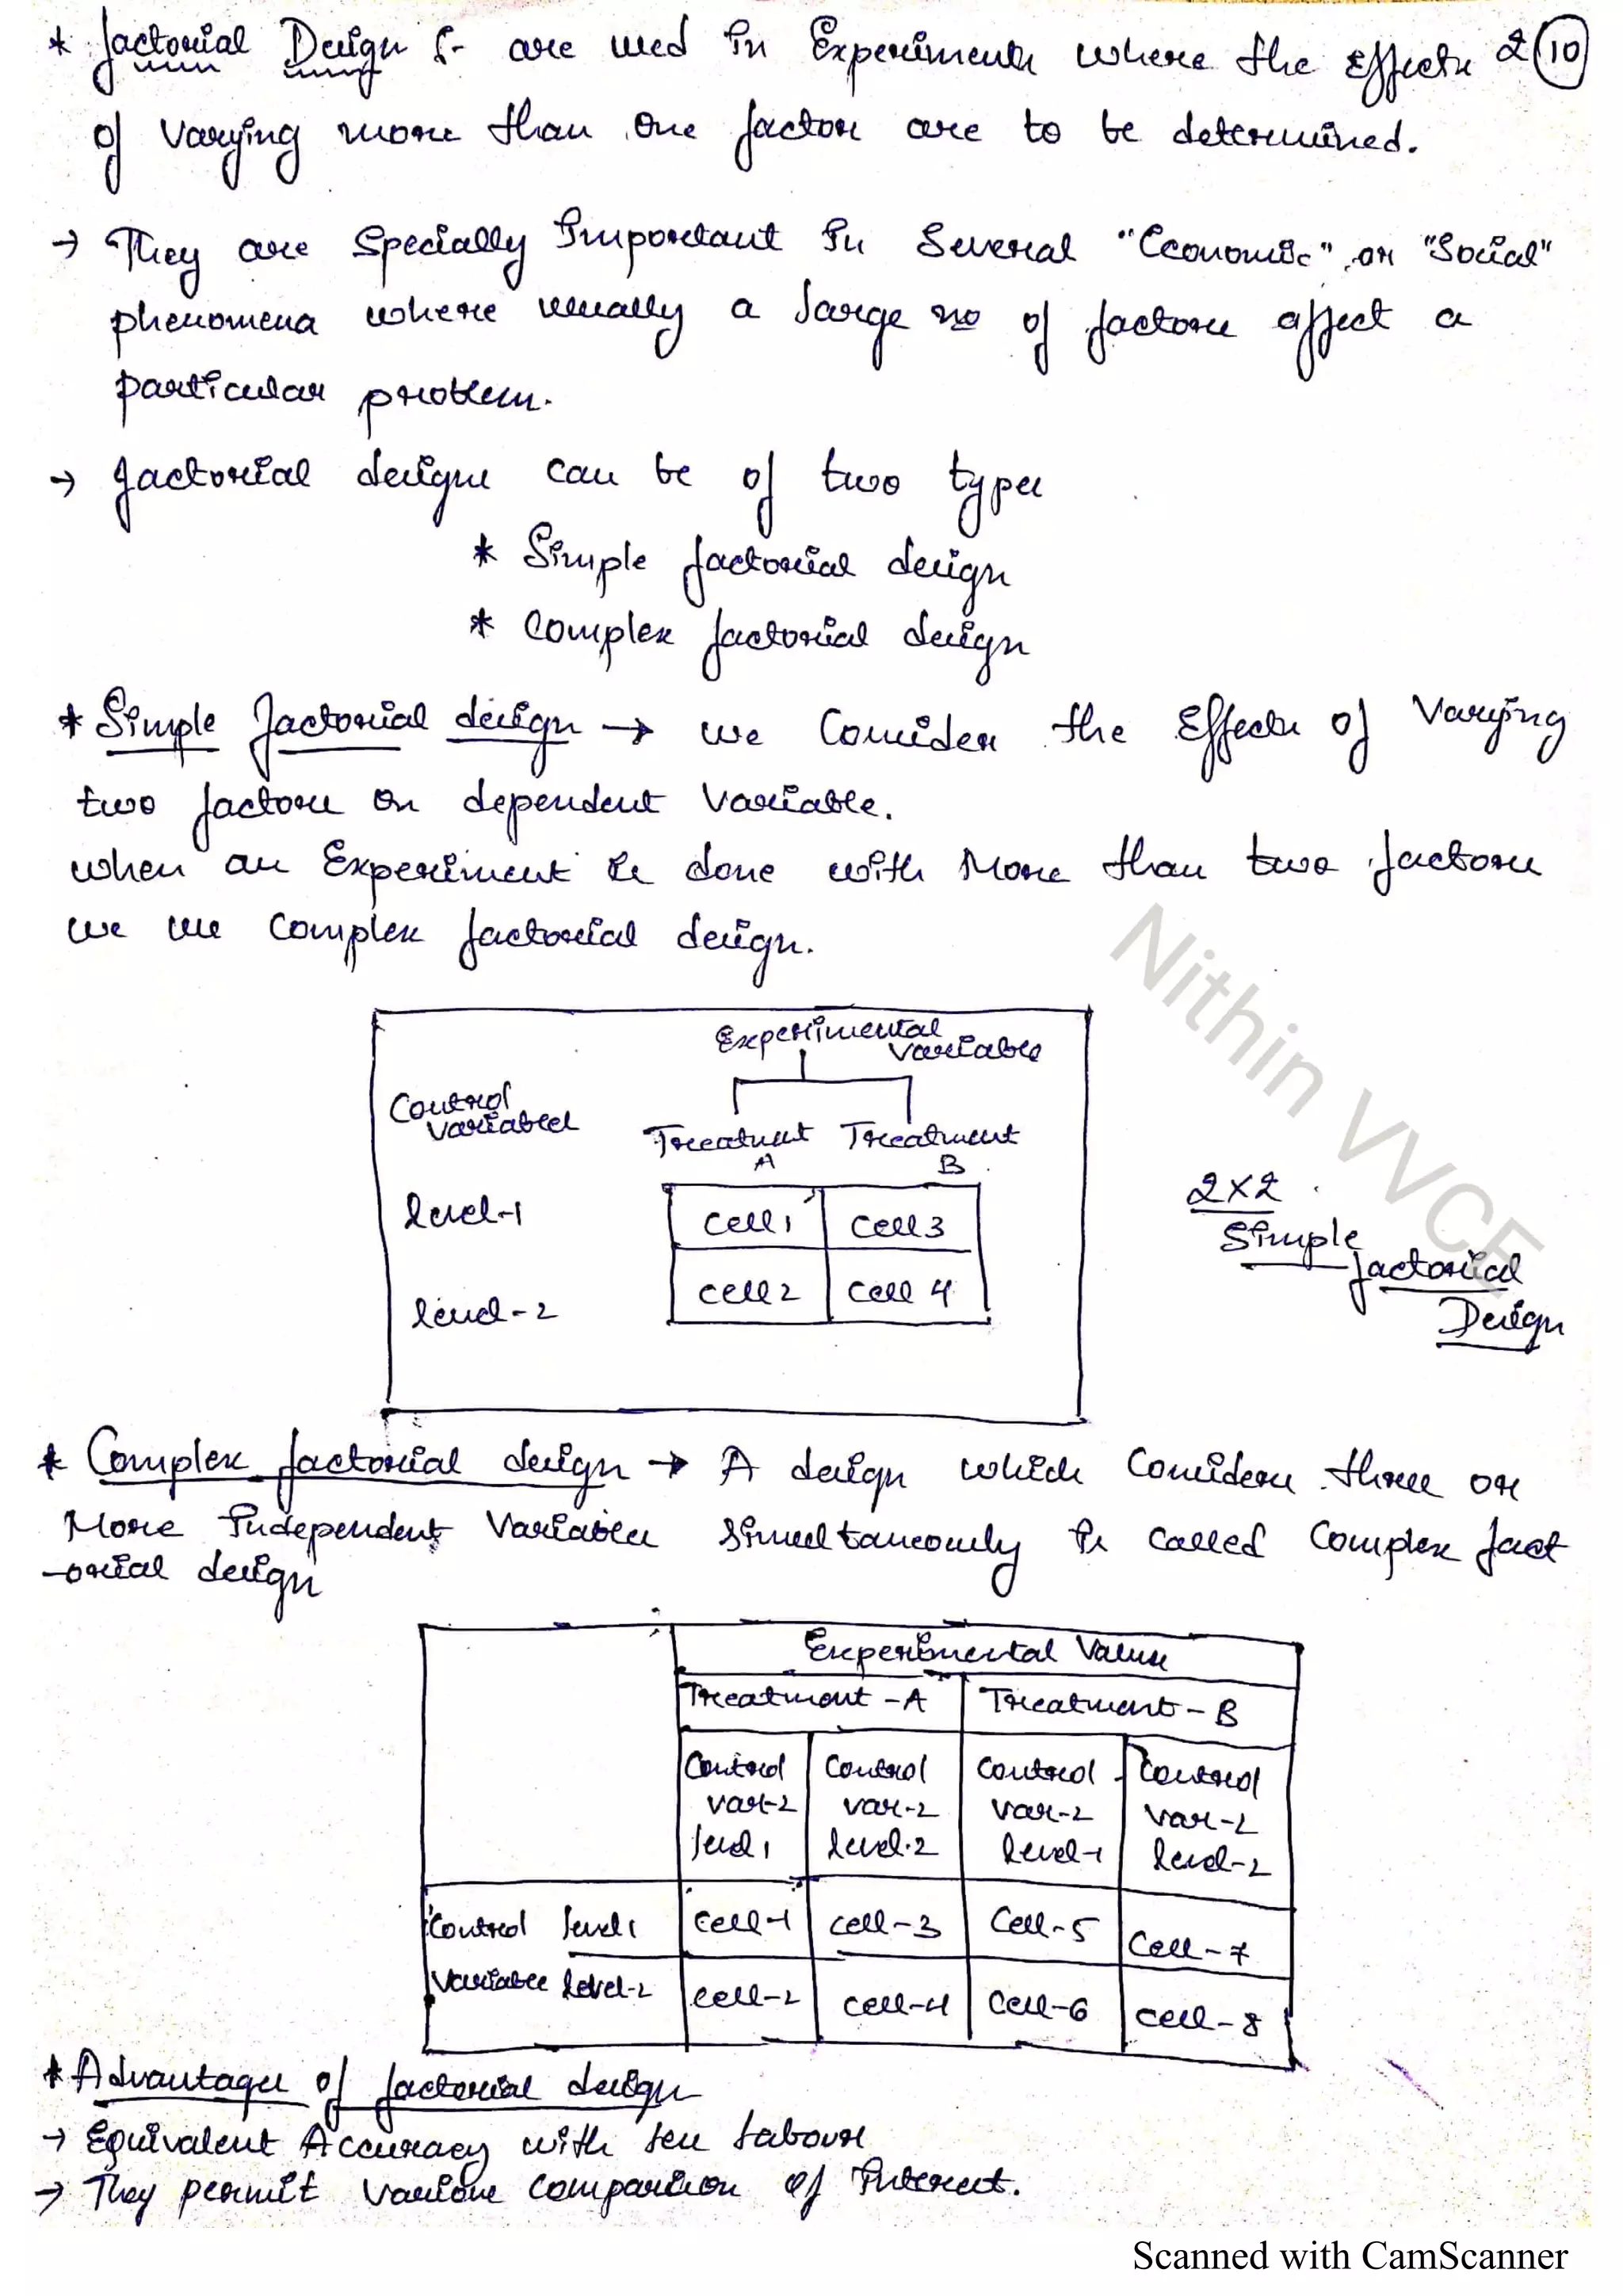 * Factorial Design :- are used in Experiments where the effects 2 10
of varying more than one factor are to be determined.
→ They are specially important in several "Economic" or "Social"
phenomena where usually a large no of factors affect a
particular problem.
→ factorial designs can be of two types
* Simple factorial design
* Complex factorial design
* Simple factorial design → we Consider the effects of varying
two factors on dependent variable.
when an Experiment is done with More than two factors
we use complex factorial design.
Experimental
Variable
Control
variables
Treatment Treatment
A B
level-1 cell 1 cell 3
level-2 cell 2 cell 4
2x2
Simple
factorial
Design
* Complex factorial design → A design which Considers three or
More independent variables simultaneously is called Complex fact
-orial design
Experimental Value
Treatment - A Treatment - B
Control Control Control Control
var-2 var-2 var-2 var-2
level 1 level-2 level-1 level-2
Control level 1 cell-1 cell-3 cell-5 cell-7
Variable level-2 cell-2 cell-4 cell-6 cell-8
* Advantages of factorial design
→ Equivalent Accuracy with less labour
→ They permit various comparison of interest.
Nithin VVCE
Scanned with CamScanner